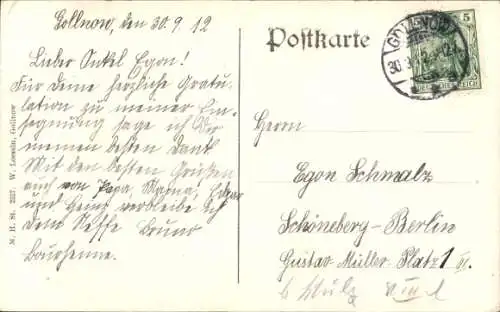 Gollnow, den 30.9.12
Lieber Onkel Egon!
Für Deine herzliche Gratu-
lation zu meiner Ein-
segnung sage ich Dir
meinen besten Dank.
Mit den besten Grüßen
auch von Papa, Mama, Edgar
und Heinz verbleibe ich
Dein Neffe Bruno
M. H. St. 2327. W. Loessin, Gollnow
Postkarte
GOLLNOW
30.9.12
5
DEUTSCHES REICH
Herrn
Egon Schmalz
Schöneberg-Berlin
Gustav-Müller-Platz 1